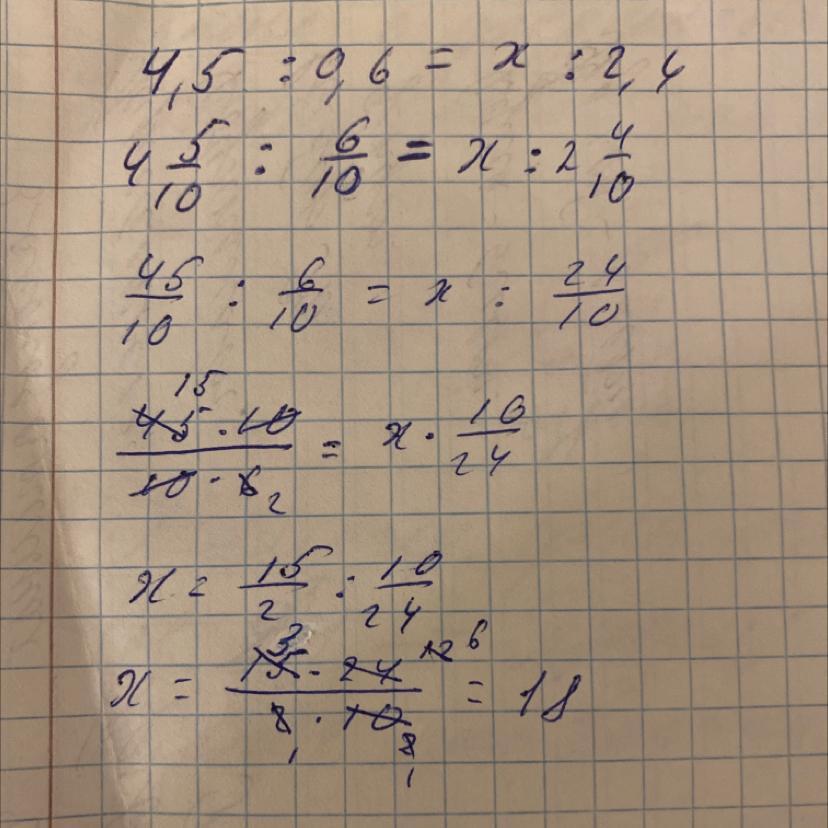 4,5 : 0,6 = x : 2,4
4 5/10 : 6/10 = x : 2 4/10
45/10 : 6/10 = x : 24/10
15
45 · 10 / 10 · 6 2 = x · 10/24
x = 15/2 : 10/24
3 12 6
x = 15 · 24 / 2 · 10 = 18
1 2
1